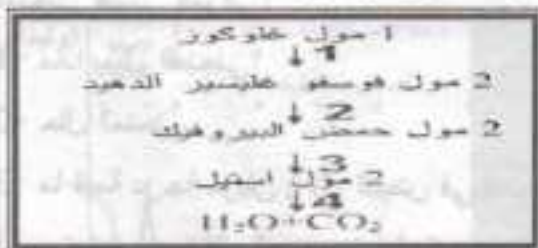 1 مول غلوكوز
↓ 1
2 مول فوسفو غليسير الدهيد
↓ 2
2 مول حمض البيروفيك
↓ 3
2 مول استيل
↓ 4
H₂O+CO₂